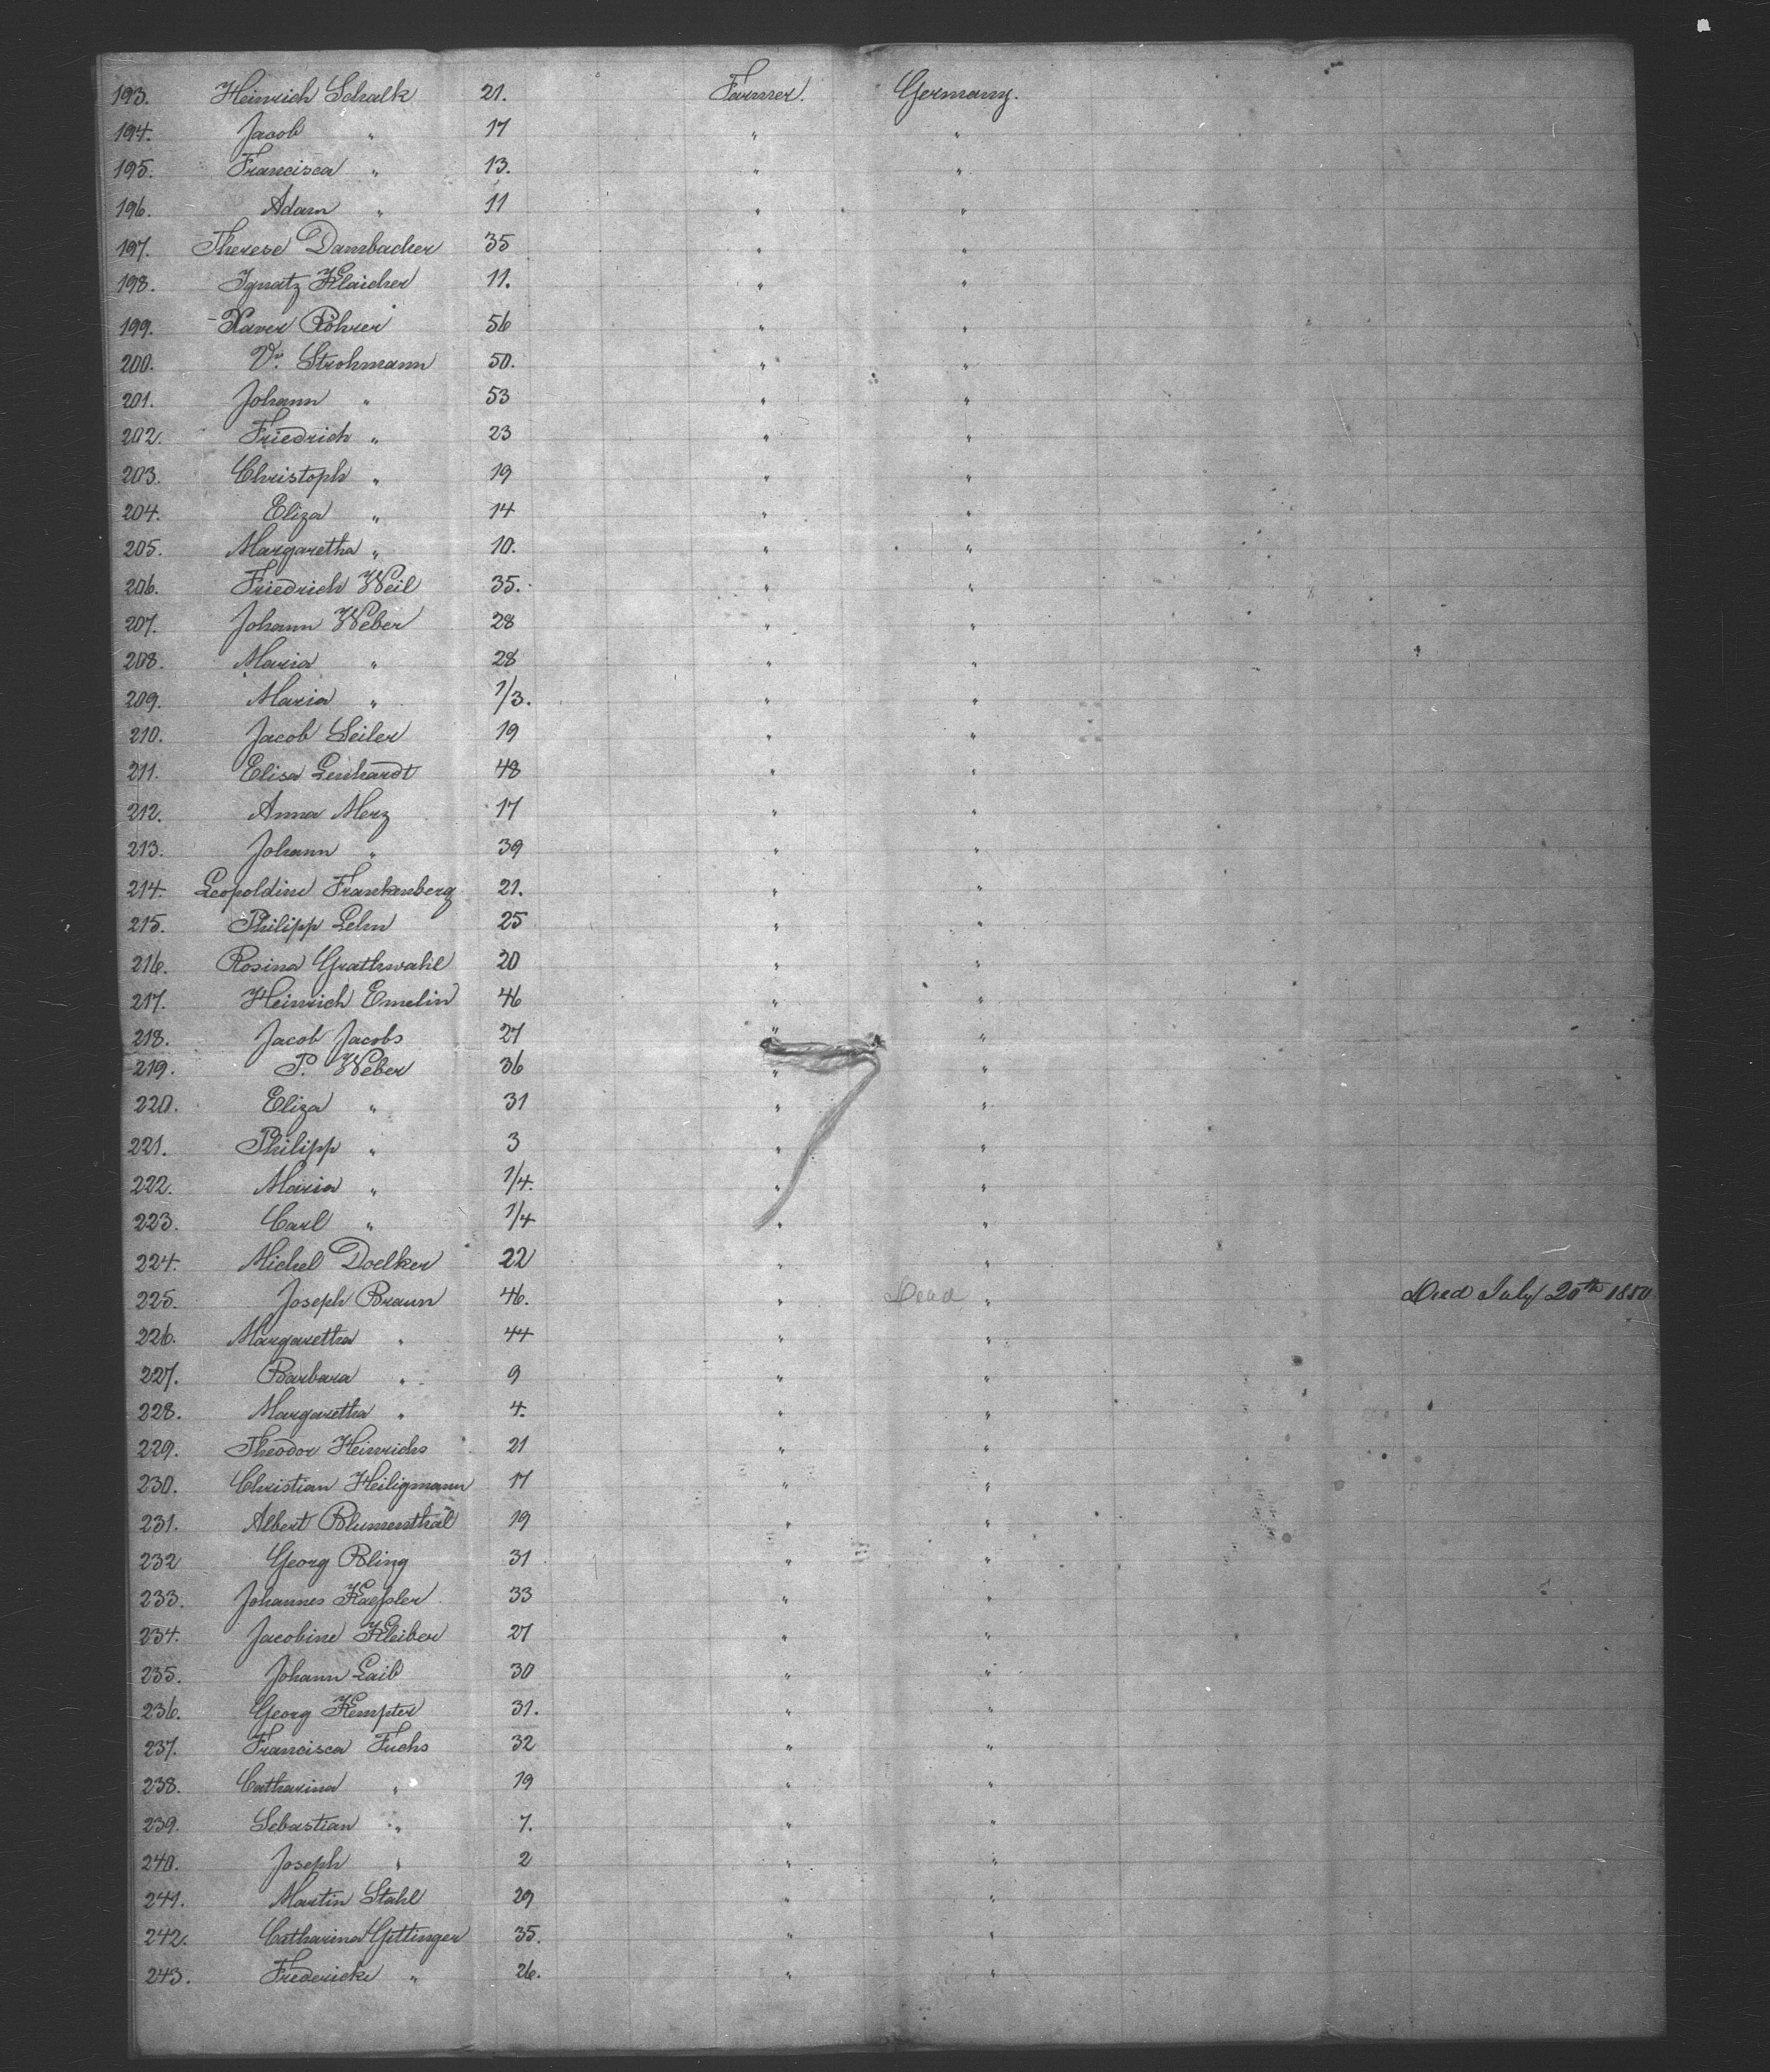 193. Heinrich Schalk 21. Farmer. Germany.
194. Jacob " 17 " "
195. Francisca " 13. " "
196. Adam " 11 " "
197. Therese Dambacher 35 " "
198. Ignatz Klaicher 11. " "
199. Xaver Röhrer 56 " "
200. V. Strohmann 50. " "
201. Johann " 53 " "
202. Friedrich " 23 " "
203. Christoph " 19 " "
204. Eliza " 14 " "
205. Margaretha " 10. " "
206. Friedrich Weil 35. " "
207. Johann Weber 28 " "
208. Maria " 28 " "
209. Maria " 1/3. " "
210. Jacob Seiler 19 " "
211. Elisa Lenhardt 48 " "
212. Anna Merz 17 " "
213. Johann " 39 " "
214. Leopoldine Frankenberg 21. " "
215. Philipp Lehn 25 " "
216. Rosina Grathwahl 20 " "
217. Heinrich Emelin 46 " "
218. Jacob Jacobs 27 " "
219. P. Weber 36 " "
220. Eliza " 31 " "
221. Philipp " 3 " "
222. Maria " 1/4. " "
223. Carl " 1/4 " "
224. Michel Doelker 22 " "
225. Joseph Braun 46. " Dead " Died July 20th 1850
226. Margaretha " 44 " "
227. Barbara " 9 " "
228. Margaretha " 4. " "
229. Theodor Heinrichs 21 " "
230. Christian Heiligmann 17 " "
231. Albert Blumenthal 19 " "
232 Georg Bling 31 " "
233. Johannes Kaeßler 33 " "
234. Jacobine Kleiber 27 " "
235. Johann Laib 30 " "
236. Georg Kempter 31. " "
237. Francisca Fuchs 32 " "
238. Catharina " 19 " "
239. Sebastian " 7. " "
240. Joseph " 2 " "
241. Martin Stahl 29 " "
242. Catharina Gittinger 35. " "
243. Fredericke " 26. " "